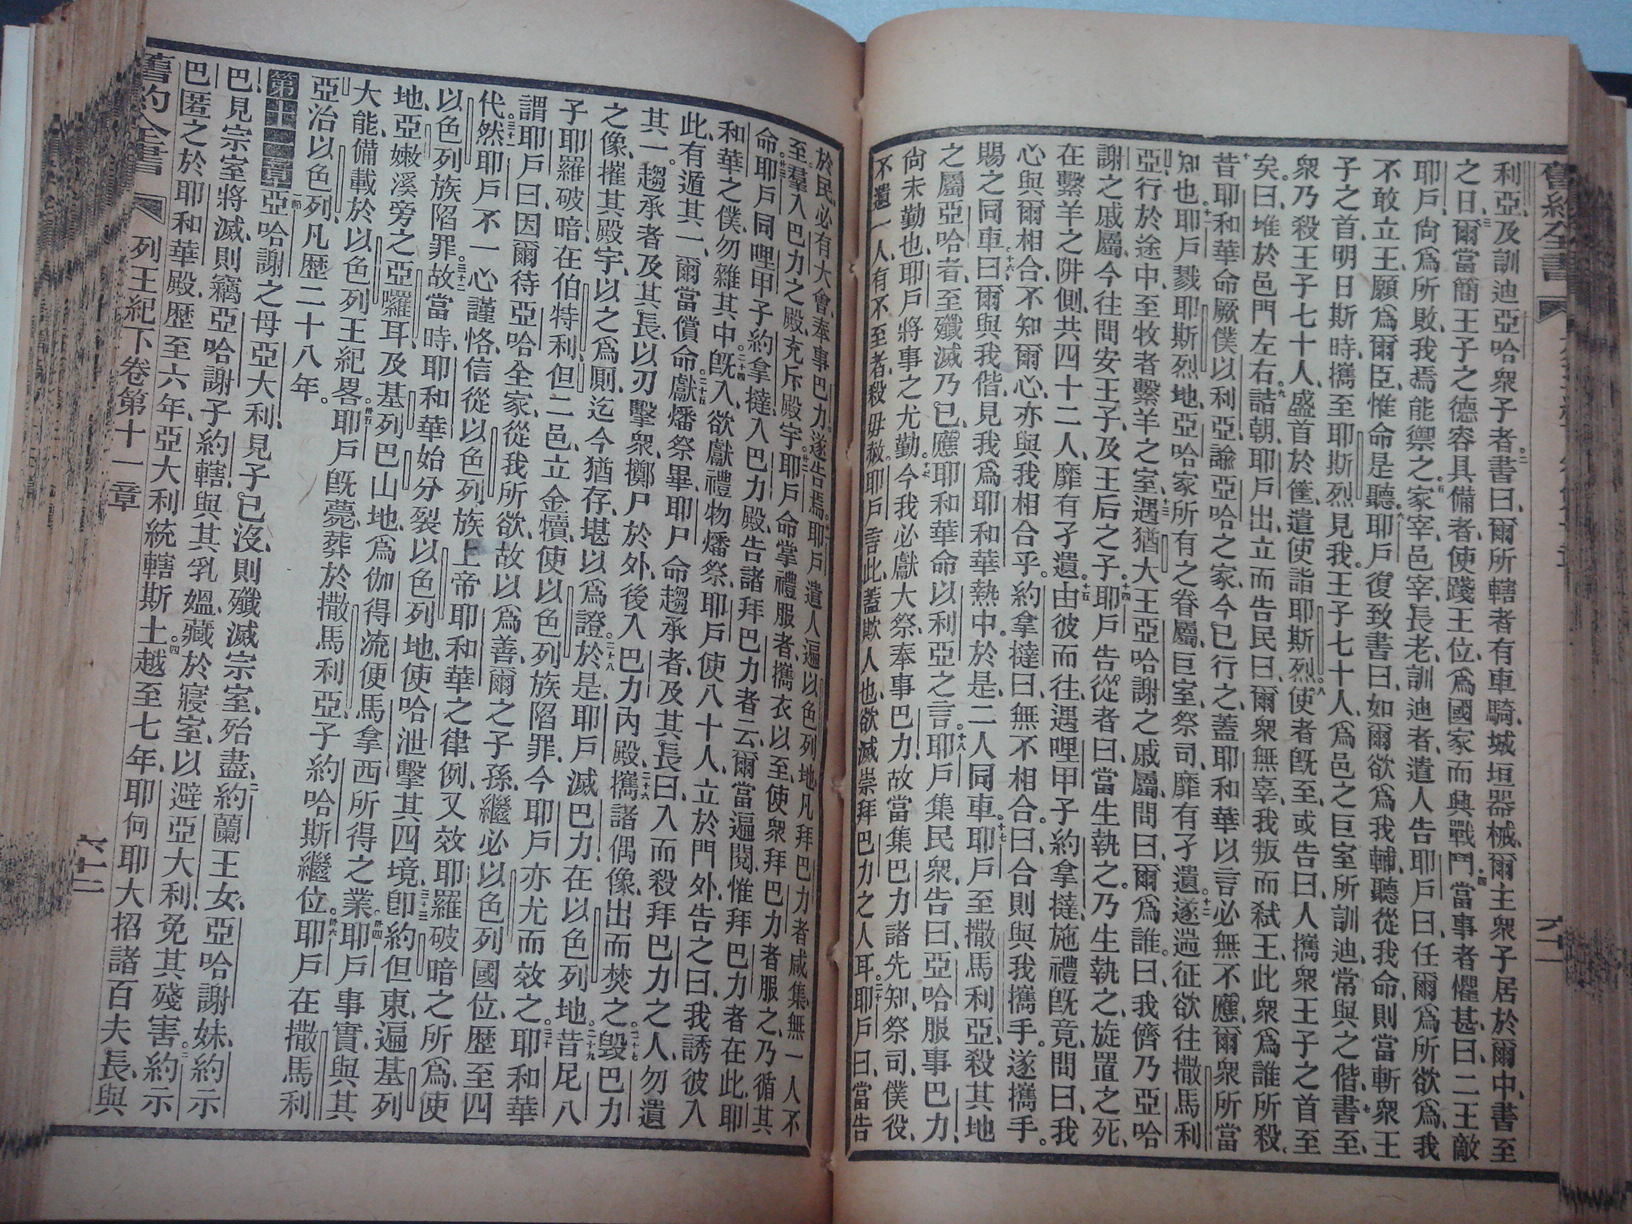 利亞、及訓迪亞哈衆子者、書曰、爾所轄者、有車騎、城垣器械、爾主衆子居於爾中、書至
之日、爾當簡王子之德容具備者、使踐王位、爲國家而與戰鬥、當事者懼甚、曰、二王敵
耶戶、尚爲所敗、我焉能禦之、家宰、邑宰、長老、訓迪者、遣人告耶戶曰、任爾爲所欲爲、我
不敢立王、願爲爾臣、惟命是聽、耶戶復致書曰、如爾欲爲我輔、聽從我命、則當斬衆王
子之首、明日斯時、攜至耶斯烈見我、王子七十人、爲邑之巨室所訓迪、常與之偕、書至、
衆乃殺王子七十人、盛首於筐、遣使詣耶斯烈、使者旣至、或告曰、人攜衆王子之首至
矣、曰、堆於邑門左右、詰朝、耶戶出立而告民曰、爾衆無辜、我叛而弒王、此衆爲誰所殺、
昔耶和華命厥僕以利亞諭亞哈之家、今已行之、蓋耶和華以言、必無不應、爾衆所當
知也、耶戶戮耶斯烈地亞哈家所有之眷屬、巨室祭司、靡有孑遺、遂遄征欲往撒馬利
亞、行於途中、至牧者繫羊之室、遇猶大王亞哈謝之戚屬、問曰、爾爲誰、曰、我儕乃亞哈
謝之戚屬、今往問安王子、及王后之子、耶戶告從者曰、當生執之、乃生執之、旋置之死、
在繫羊之阱側、共四十二人、靡有孑遺、由彼而往、遇哩甲子約拿撻、施禮旣竟、問曰、我
心與爾相合、不知爾心亦與我相合乎。約拿撻曰、無不相合。曰、合則與我攜手。遂攜手。
賜之同車、曰、爾與我偕、見我爲耶和華熱中、於是二人同車、耶戶至撒馬利亞、殺其地
之屬亞哈者、至殲滅乃已、應耶和華命以利亞之言、耶戶集民衆告曰、亞哈服事巴力、
尚未勤也、耶戶將事之尤勤、今我必獻大祭、奉事巴力、故當集巴力諸先知、祭司、僕役、
不遺一人、有不至者、殺毋赦、耶戶言此、蓋欺人也、欲滅崇拜巴力之人耳、耶戶曰、當告
於民、必有大會、奉事巴力、遂告焉、耶戶遣人遍以色列地、凡拜巴力者咸集、無一人不
至、羣入巴力之殿、充斥殿宇、耶戶命掌禮服者、攜衣以至、使衆拜巴力者服之、乃循其
命、耶戶同哩甲子約拿撻、入巴力殿、告諸拜巴力者云、爾當遍閱、惟拜巴力者在此、耶
和華之僕、勿雜其中、旣入、欲獻禮物燔祭、耶戶使八十人、立於門外、告之曰、我誘彼入
此、有遁其一、爾當償命、獻燔祭畢、耶戶命趨承者、及其長曰、入而殺拜巴力之人、勿遺
其一、趨承者及其長、以刃擊衆、擲尸於外、後入巴力內殿、攜諸偶像、出而焚之、毀巴力
之像、摧其殿宇、以之爲厠、迄今猶存、堪以爲證、於是耶戶滅巴力、在以色列地、昔尼八
子耶羅破暗、在伯特利、但二邑、立金犢、使以色列族陷罪、今耶戶亦尤而效之、耶和華
謂耶戶曰、因爾待亞哈全家、從我所欲、故以爲善、爾之子孫、繼必以色列國位、歷至四
代、然耶戶不一心謹恪、信從以色列族上帝耶和華之律例、又效耶羅破暗之所爲、使
以色列族陷罪、故當時、耶和華始分裂以色列地、使哈泄擊其四境、卽約但東、遍基列
地、亞嫩溪旁之亞囉耳、及基列、巴山地、爲伽得、流便、馬拿西所得之業、耶戶事實、與其
大能、備載於以色列王紀畧、耶戶旣薨、葬於撒馬利亞、子約哈斯繼位、耶戶在撒馬利
亞、治以色列、凡歷二十八年。
第十一章 亞哈謝之母亞大利、見子已沒、則殲滅宗室殆盡、約蘭王女、亞哈謝妹、約示
巴、見宗室將滅、則竊亞哈謝子約轄、與其乳媼、藏於寢室、以避亞大利、免其殘害、約示
巴匿之於耶和華殿、歷至六年、亞大利統轄斯土、越至七年、耶何耶大招諸百夫長、與
舊約全書 列王紀下卷第十一章 六十二